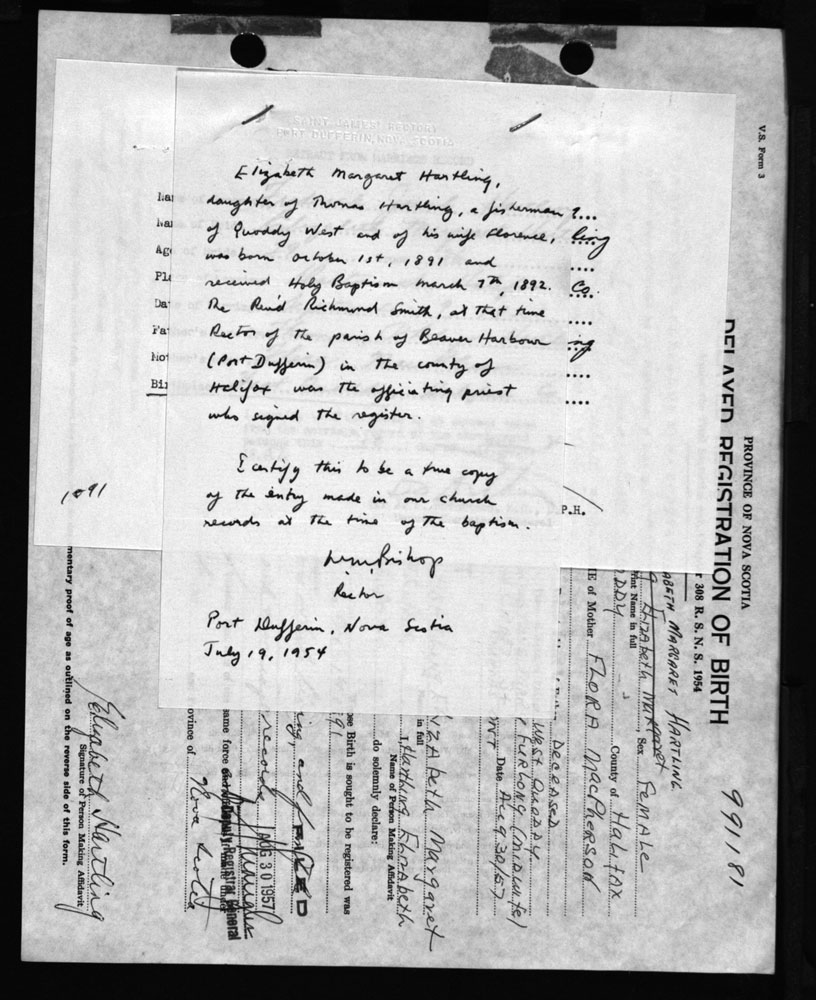 SAINT JAMES' RECTORY
PORT DUFFERIN, NOVA SCOTIA
EXTRACT FROM MARRIAGE RECORD
Elizabeth Margaret Hartling,
daughter of Thomas Hartling, a fisherman
of Quoddy West and of his wife Florence,
was born October 1st, 1891 and
received Holy Baptism March 7th, 1892.
The Rev'd Richmond Smith, at that time
Rector of the parish of Beaver Harbour
(Port Dufferin) in the county of
Halifax was the officiating priest
who signed the register.
I certify this to be a true copy
of the entry made in our church
records at the time of the baptism.
Rector
Port Dufferin, Nova Scotia
July 19, 1954
Co.
P.H.
1891
V.S. Form 3
PROVINCE OF NOVA SCOTIA
DELAYED REGISTRATION OF BIRTH
308 R. S. N. S. 1954
991181
ABETH MARGARET HARTLING
Print Name in full
Elizabeth Margaret
Sex Female
County of Halifax
of Mother FLORA MacPherson
Deceased
West Quoddy
Furlong (Midwife)
Date Aug 30/57
in full
IZABeth Margaret
I, Hartling Elizabeth
Name of Person Making Affidavit
do solemnly declare:
Birth is sought to be registered was
91
ing, and
records
same force
FILED
AUG 30 1957
Deputy Registrar General
ovince of Nova Scotia
Elizabeth Hartling
Signature of Person Making Affidavit
mentary proof of age as outlined on the reverse side of this form.